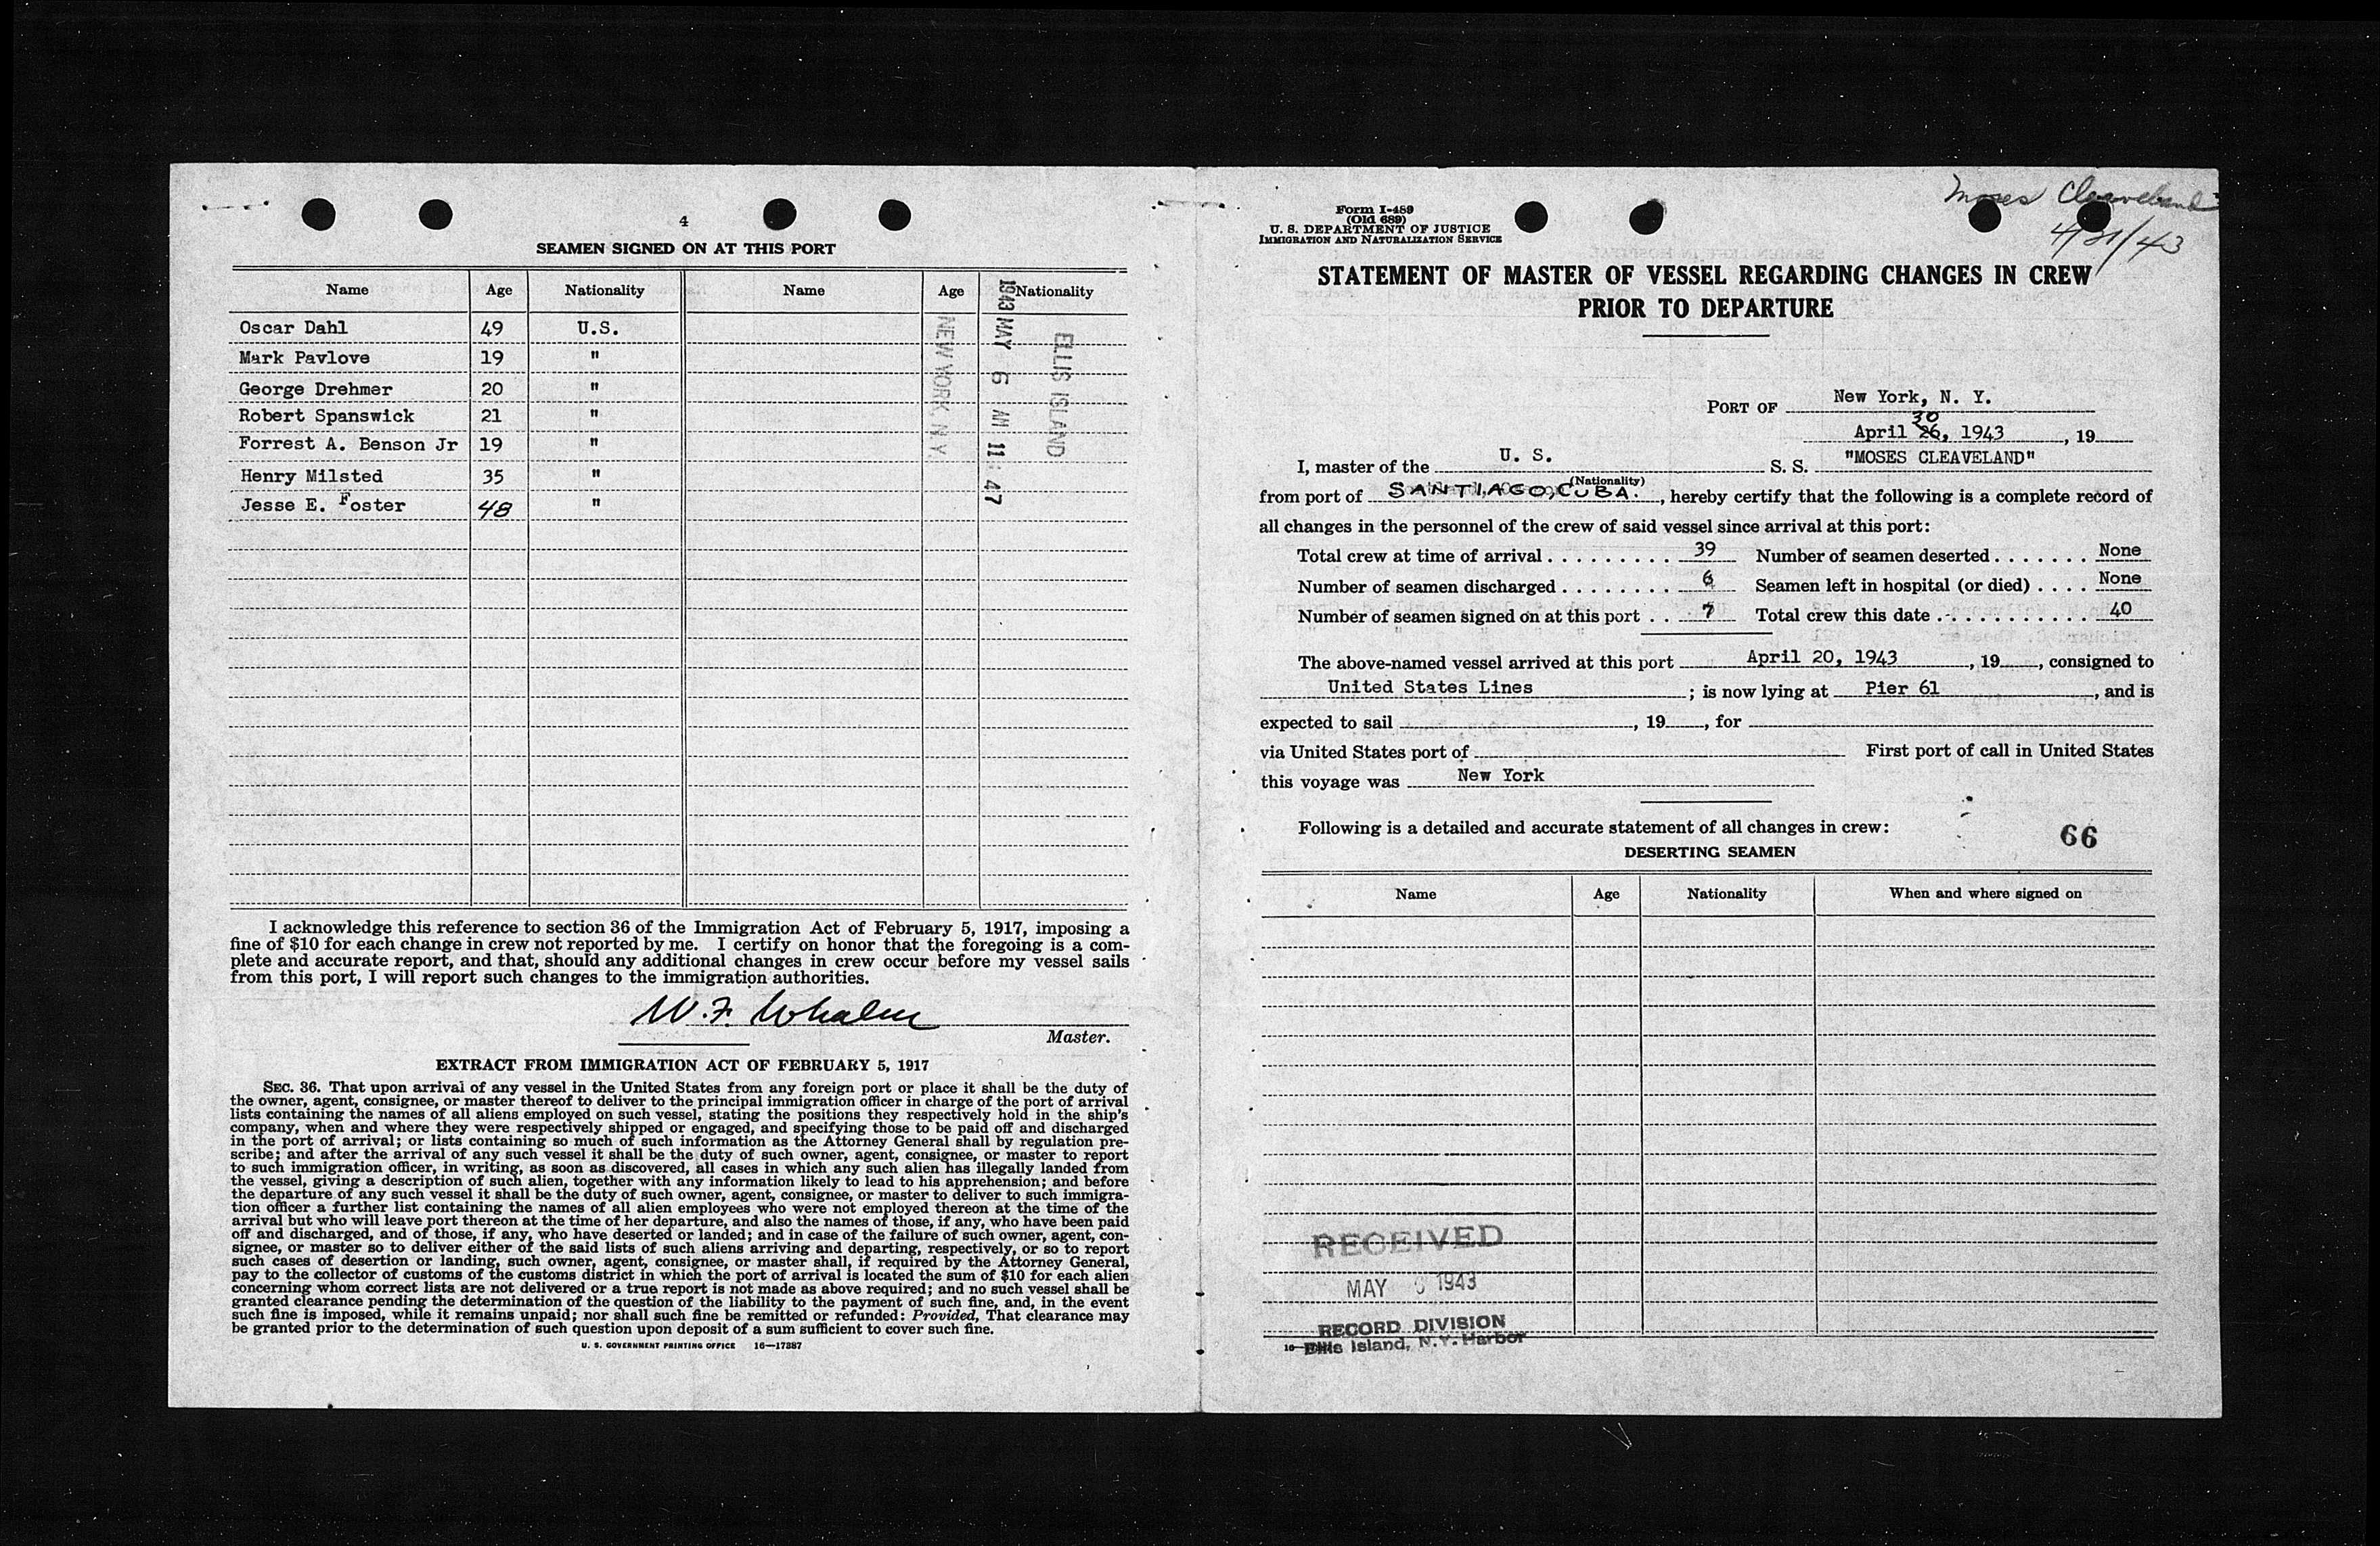 4
SEAMEN SIGNED ON AT THIS PORT
Name Age Nationality Name Age Nationality
Oscar Dahl 49 U.S.
Mark Pavlove 19 "
George Drehmer 20 "
Robert Spanswick 21 "
Forrest A. Benson Jr 19 "
Henry Milsted 35 "
Jesse E. Foster 48 "
NEW YORK, N.Y.
1943 MAY 6 AM 11:47
ELLIS ISLAND
I acknowledge this reference to section 36 of the Immigration Act of February 5, 1917, imposing a
fine of $10 for each change in crew not reported by me. I certify on honor that the foregoing is a com-
plete and accurate report, and that, should any additional changes in crew occur before my vessel sails
from this port, I will report such changes to the immigration authorities.
W. F. Whalen
Master.
EXTRACT FROM IMMIGRATION ACT OF FEBRUARY 5, 1917
SEC. 36. That upon arrival of any vessel in the United States from any foreign port or place it shall be the duty of
the owner, agent, consignee, or master thereof to deliver to the principal immigration officer in charge of the port of arrival
lists containing the names of all aliens employed on such vessel, stating the positions they respectively hold in the ship's
company, when and where they were respectively shipped or engaged, and specifying those to be paid off and discharged
in the port of arrival; or lists containing so much of such information as the Attorney General shall by regulation pre-
scribe; and after the arrival of any such vessel it shall be the duty of such owner, agent, consignee, or master to report
to such immigration officer, in writing, as soon as discovered, all cases in which any such alien has illegally landed from
the vessel, giving a description of such alien, together with any information likely to lead to his apprehension; and before
the departure of any such vessel it shall be the duty of such owner, agent, consignee, or master to deliver to such immigra-
tion officer a further list containing the names of all alien employees who were not employed thereon at the time of the
arrival but who will leave port thereon at the time of her departure, and also the names of those, if any, who have been paid
off and discharged, and of those, if any, who have deserted or landed; and in case of the failure of such owner, agent, con-
signee, or master so to deliver either of the said lists of such aliens arriving and departing, respectively, or so to report
such cases of desertion or landing, such owner, agent, consignee, or master shall, if required by the Attorney General,
pay to the collector of customs of the customs district in which the port of arrival is located the sum of $10 for each alien
concerning whom correct lists are not delivered or a true report is not made as above required; and no such vessel shall be
granted clearance pending the determination of the question of the liability to the payment of such fine, and, in the event
such fine is imposed, while it remains unpaid; nor shall such fine be remitted or refunded: Provided, That clearance may
be granted prior to the determination of such question upon deposit of a sum sufficient to cover such fine.
U. S. GOVERNMENT PRINTING OFFICE 16—17387
Moses Cleaveland
4/21/43
Form I-489
(Old 689)
U. S. DEPARTMENT OF JUSTICE
IMMIGRATION AND NATURALIZATION SERVICE
STATEMENT OF MASTER OF VESSEL REGARDING CHANGES IN CREW
PRIOR TO DEPARTURE
PORT OF New York, N. Y.
30
April 26, 1943, 19
I, master of the U. S. S. S. "MOSES CLEAVELAND"
(Nationality)
from port of SANTIAGO, CUBA., hereby certify that the following is a complete record of
all changes in the personnel of the crew of said vessel since arrival at this port:
Total crew at time of arrival . . . . . . . . . . 39 Number of seamen deserted . . . . . . . None
Number of seamen discharged . . . . . . . . 6 Seamen left in hospital (or died) . . . . None
Number of seamen signed on at this port . . 7 Total crew this date . . . . . . . . . . . 40
The above-named vessel arrived at this port April 20, 1943, 19, consigned to
United States Lines; is now lying at Pier 61, and is
expected to sail, 19, for
via United States port of First port of call in United States
this voyage was New York
Following is a detailed and accurate statement of all changes in crew:
66
DESERTING SEAMEN
Name Age Nationality When and where signed on
RECEIVED
MAY 6 1943
RECORD DIVISION
Ellis Island, N.Y. Harbor